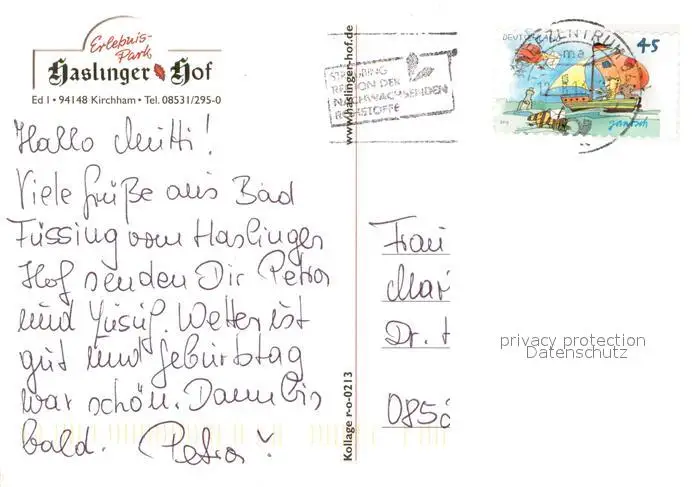 Erlebnis-
Park
Haslinger Hof
Ed 1 • 94148 Kirchham • Tel. 08531/295-0
Hallo Mutti!
Viele Grüße aus Bad
Füssing vom Haslinger
Hof senden Dir Petra
und Yusuf. Wetter ist
gut und Geburtstag
war schön. Dann bis
bald. Petra
www.haslinger-hof.de
Kollage r-o-0213
STRAUBING
REGION DER
NACHWACHSENDEN
ROHSTOFFE
BRIEFZENTRUM
DEUTSCHLAND
45
janosch
Frau
Mar
Dr.
085
privacy protection
Datenschutz